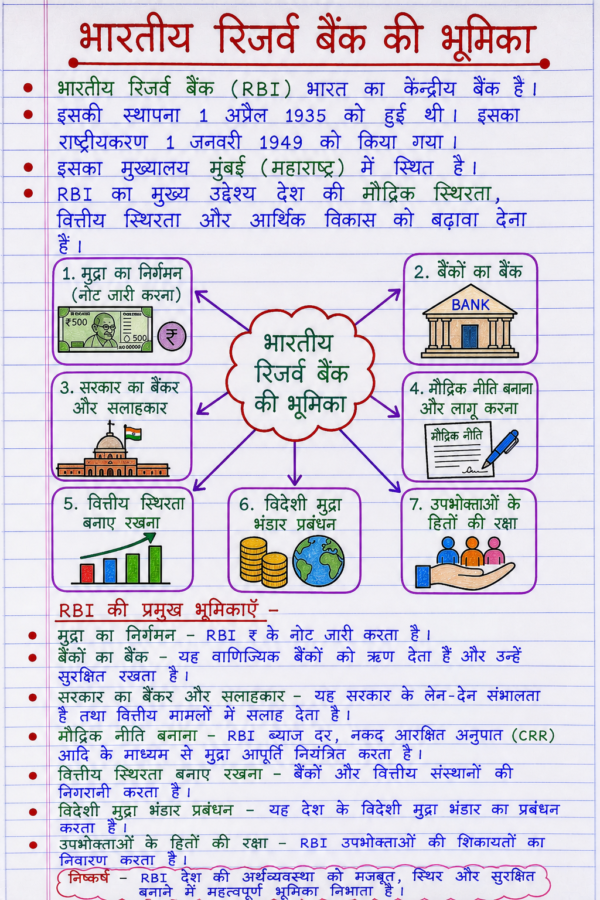 भारतीय रिजर्व बैंक की भूमिका
भारतीय रिजर्व बैंक (RBI) भारत का केंन्द्रीय बैंक है।
इसकी स्थापना 1 अप्रैल 1935 को हुई थी। इसका
राष्ट्रीयकरण 1 जनवरी 1949 को किया गया।
इसका मुख्यालय मुंबई (महाराष्ट्र) में स्थित है।
RBI का मुख्य उद्देश्य देश की मौद्रिक स्थिरता,
वित्तीय स्थिरता और आर्थिक विकास को बढ़ावा देना
हैं।
1. मुद्रा का निर्गमन
(नोट जारी करना)
₹500
500
₹
2. बैंकों का बैंक
BANK
भारतीय
रिजर्व बैंक
की भूमिका
3. सरकार का बैंकर
और सलाहकार
4. मौद्रिक नीति बनाना
और लागू करना
मौद्रिक नीति
5. वित्तीय स्थिरता
बनाए रखना
6. विदेशी मुद्रा
भंडार प्रबंधन
7. उपभोक्ताओं के
हितों की रक्षा
RBI की प्रमुख भूमिकाएँ –
मुद्रा का निर्गमन – RBI ₹ के नोट जारी करता है।
बैंकों का बैंक – यह वाणिज्यिक बैंकों को ऋण देता हैं और उन्हें
सुरक्षित रखता है।
सरकार का बैंकर और सलाहकार – यह सरकार के लेन-देन संभालता
है तथा वित्तीय मामलों में सलाह देता है।
मौद्रिक नीति बनाना – RBI ब्याज दर, नकद आरक्षित अनुपात (CRR)
आदि के माध्यम से मुद्रा आपूर्ति नियंत्रित करता है।
वित्तीय स्थिरता बनाए रखना – बैंकों और वित्तीय संस्थानों की
निगरानी करता है।
विदेशी मुद्रा भंडार प्रबंधन – यह देश के विदेशी मुद्रा भंडार का प्रबंधन
करता है।
उपभोक्ताओं के हितों की रक्षा – RBI उपभोक्ताओं की शिकायतों का
निवारण करता है।
निष्कर्ष – RBI देश की अर्थव्यवस्था को मजबूत, स्थिर और सुरक्षित
बनाने में महत्वपूर्ण भूमिका निभाता है।